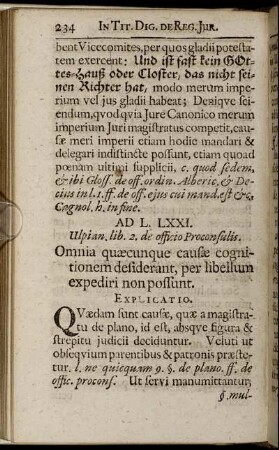 234 IN TIT. DIG. DE REG. JUR.
bent Vicecomites, per quos gladii potesta-
tem exercent: Und ist fast kein GOt-
tes-Hauß oder Closter, das nicht sei-
nen Richter hat, modo merum impe-
rium vel jus gladii habeat; Deniqve sci-
endum, qvod qvia Jure Canonico merum
imperium Juri magistratus competit, cau-
sæ meri imperii etiam hodie mandari &
delegari indistincte possunt, etiam quoad
pœnam ultimi supplicii, c. quod sedem,
& ibi Gloss. de off. ordin. Alberic. & De-
cius in l. 1. ff. de off. ejus cui mand. est &c.
Cagnol. h. in fine.
AD L. LXXI.
Ulpian. lib. 2. de officio Proconsulis.
Omnia quæcunque causæ cogni-
tionem desiderant, per libellum
expediri non possunt.
EXPLICATIO.
QVædam sunt causæ, quæ a magistra-
tu de plano, id est, absqve figura &
strepitu judicii deciduntur. Veluti ut
obseqvium parentibus & patronis præste-
tur. l. ne quicquam 9. §. de plano. ff. de
offic. procons. Ut servi manumittantur,
§. mul-